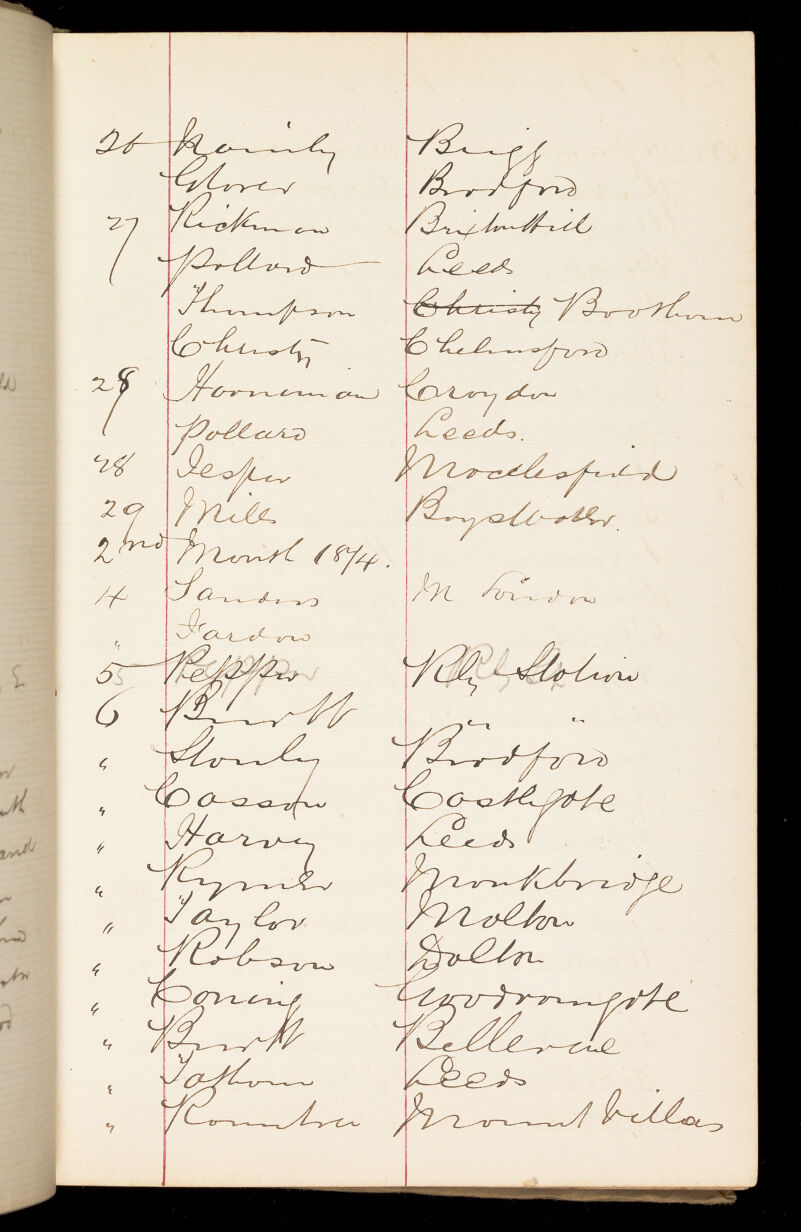 26 Nainby Brigg
Glover Bradford
27 Rickman Brixton Hill
Pollard Leeds
Thompson Christy Bootham
Christy Chelmsford
28 Horniman Croydon
Pollard Leeds.
28 Jesper Macclesfield
29 Mills Bayswater.
2nd Month 1874.
4 Sanders M London
" Fardon
5 Pepper Rly Station
6 Burtt " "
" Stanley Bradford
" Casson Castlegate
" Harvey Leeds
" Rymer Monkbridge
" Taylor Malton
" Robson Dalton
" Coning Goodramgate
" Burtt Bellevue
" Tatham Leeds
" Rowntree Mount Villas